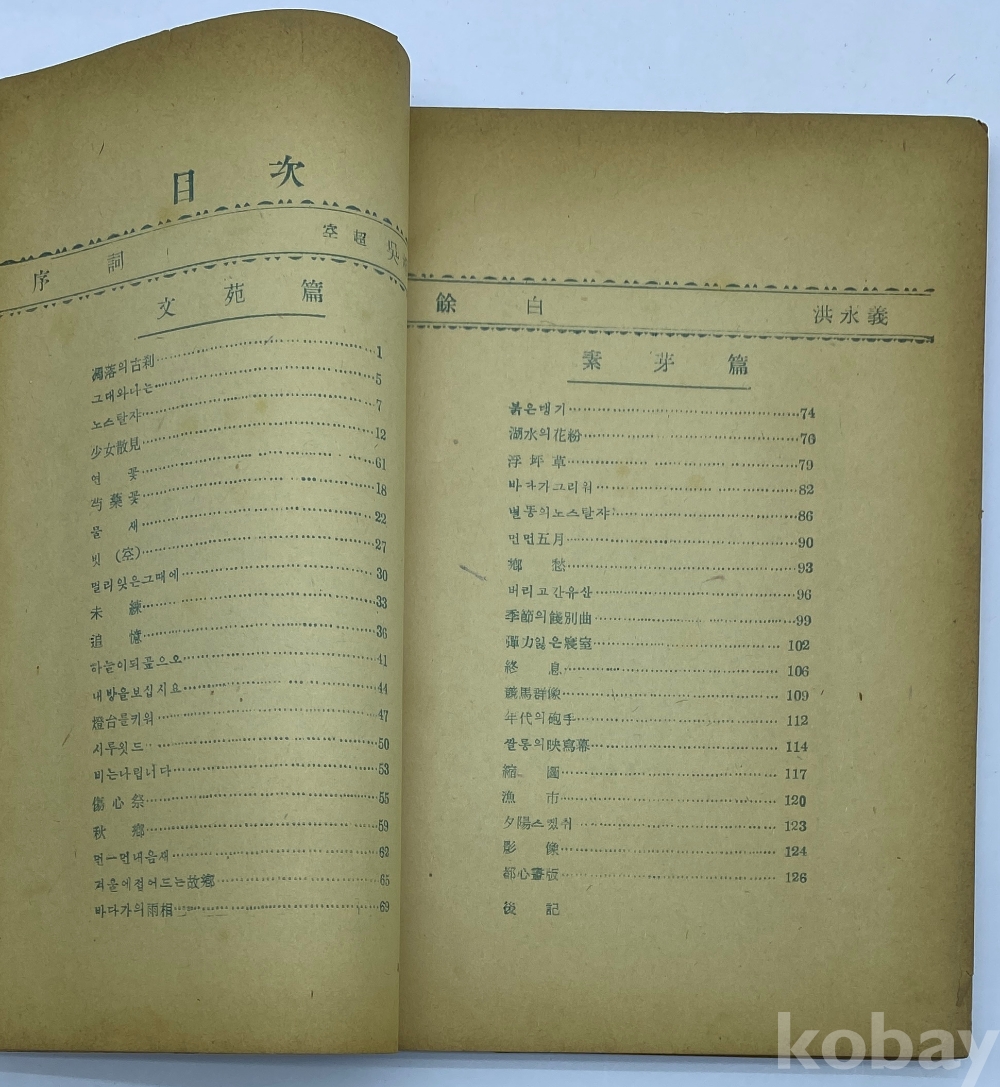 目 次
序 詞 空超 吳
文苑篇
凋落의古刹 1
그대와나는 5
노스탈쟈 7
少女散見 12
연 꽃 61
芍藥꽃 18
물 새 22
빗 (空) 27
멀리잇은그때에 30
未 練 33
追 憶 36
하늘이되곺으오 41
내방을보십시요 44
燈台를키워 47
시루윗드 50
비는나립니다 53
傷心祭 55
秋 鄕 59
먼一먼내음새 62
겨울에접어드는故鄕 65
바다가의雨相 69
餘 白 洪永義
素芽篇
붉은댕기 74
湖水의花粉 76
浮坪草 79
바다가그리워 82
별똥의노스탈쟈 86
먼먼五月 90
鄕 愁 93
버리고간유산 96
季節의餞別曲 99
彈力잃은寢室 102
終 息 106
競馬群像 109
年代의砲手 112
짤롱의映寫幕 114
縮 圖 117
漁 市 120
夕陽스켓취 123
影 像 124
都心畫版 126
後 記
kobay